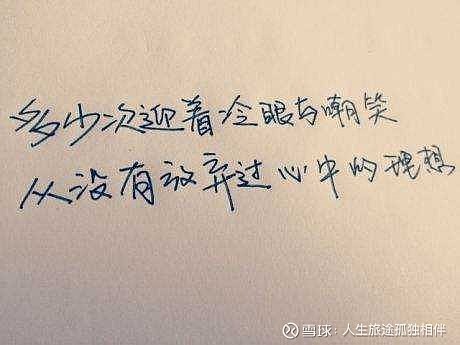 多少次迎着冷眼与嘲笑
从没有放弃过心中的理想
雪球：人生旅途孤独相伴